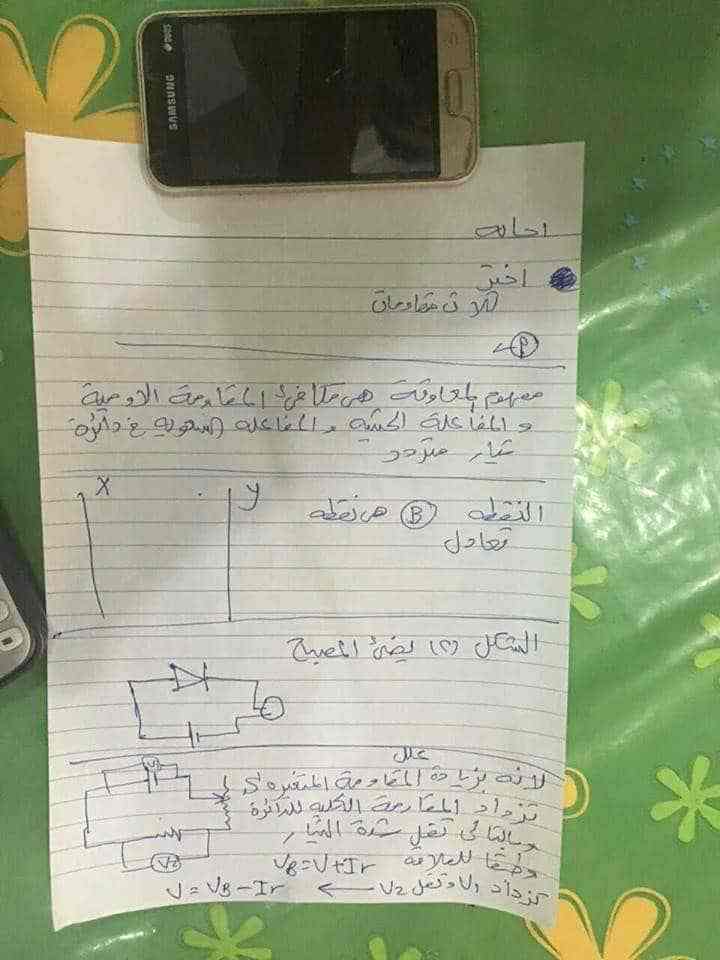 SAMSUNG
DUOS
اجابه
اختر
ثلاث مقاومات
P
مفهوم المعاوقة هى مكافئ المقاومة الاومية
و المفاعلة الحثية و المفاعله السعويه فى دائرة
تيار متردد
X y
النقطه B هى نقطه
تعادل
الشكل (٢) يضئ المصباح
علل
لانه بزيادة المقاومة المتغيره S
تزداد المقاومة الكليه للدائرة
وبالتالى تقل شدة التيار
وطبقا للعلاقة VB=V+Ir
تزداد V1 وتقل V2 ← V=VB-Ir
V2